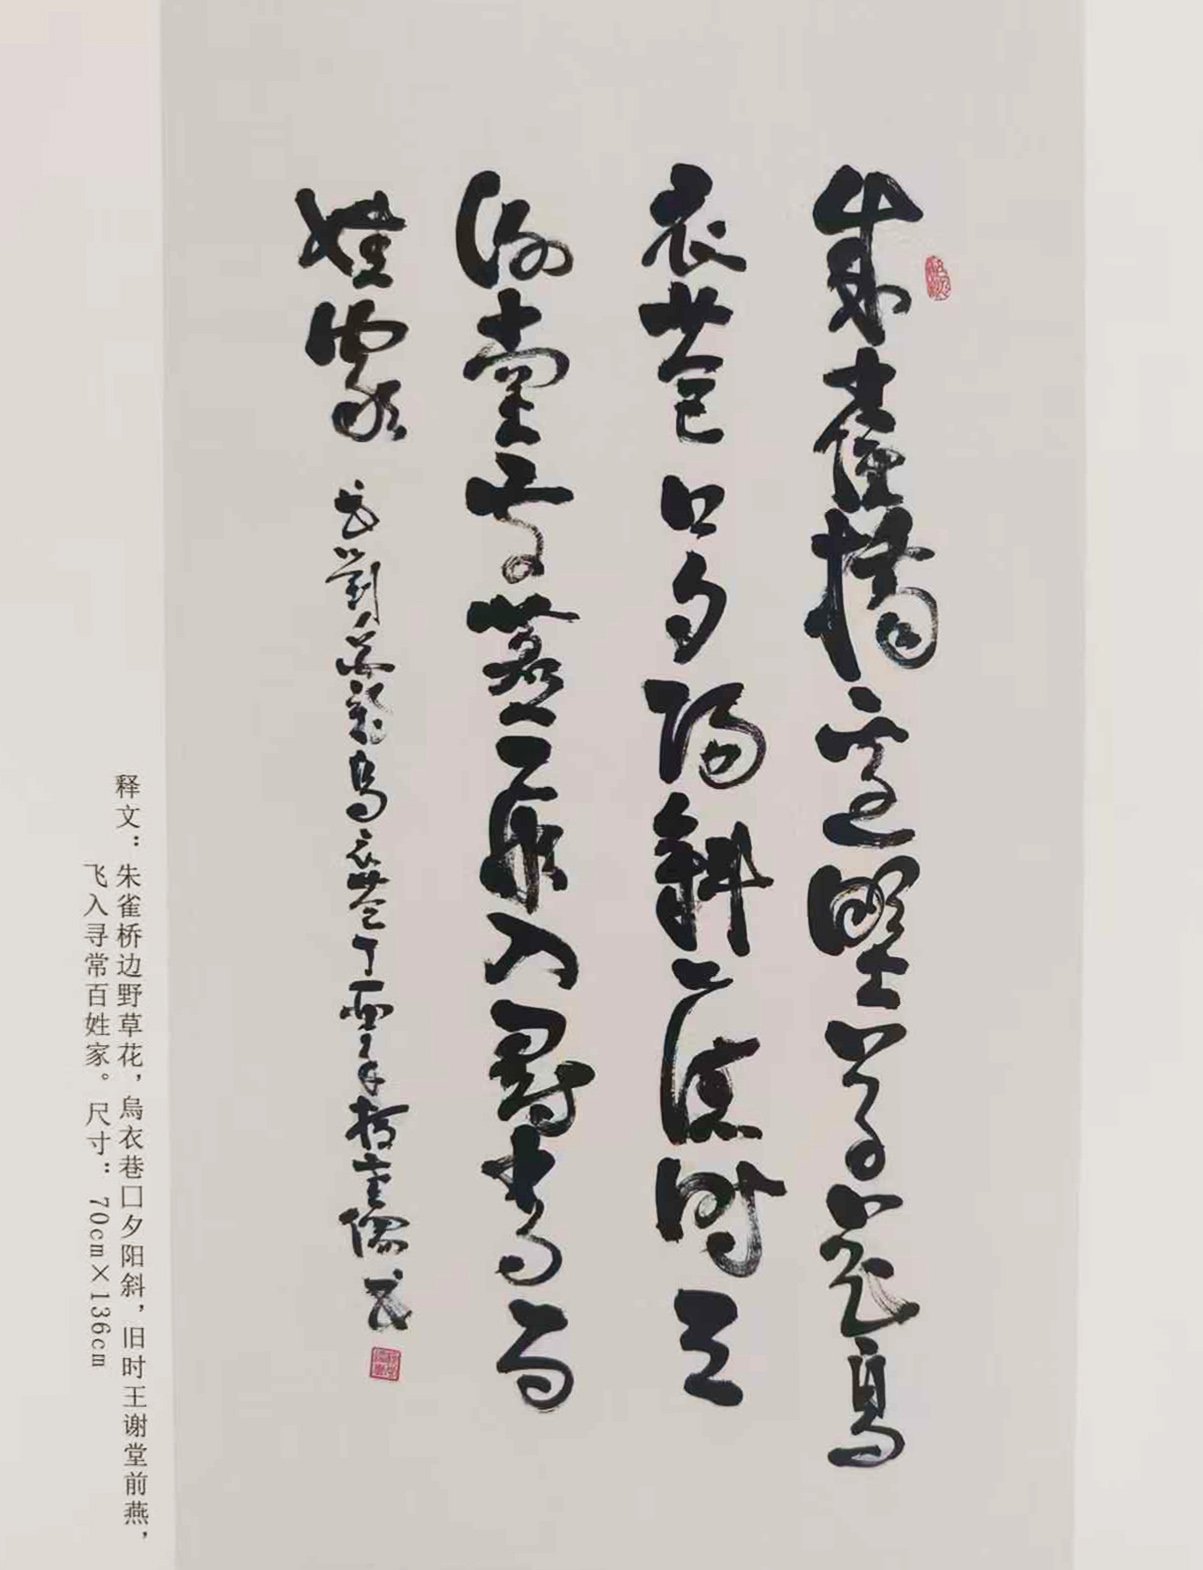 朱雀橋邊野草花烏
衣巷口夕陽斜舊時王
謝堂前燕飛入尋常百
姓家
书劉禹錫烏衣巷丁酉年书
释文：朱雀桥边野草花，烏衣巷口夕阳斜，旧时王谢堂前燕，
飞入寻常百姓家。尺寸：70cm×136cm